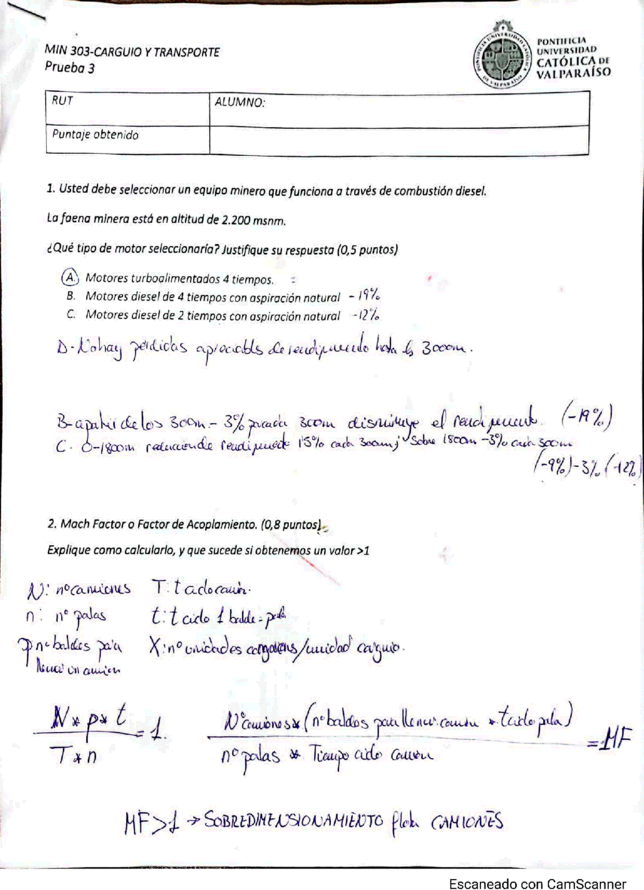 MIN 303-CARGUIO Y TRANSPORTE
Prueba 3
PONTIFICIA
UNIVERSIDAD
CATÓLICA DE
VALPARAÍSO
RUT
ALUMNO:
Puntaje obtenido
1. Usted debe seleccionar un equipo minero que funciona a través de combustión diesel.
La faena minera está en altitud de 2.200 msnm.
¿Qué tipo de motor seleccionaría? Justifique su respuesta (0,5 puntos)
A. Motores turboalimentados 4 tiempos.
B. Motores diesel de 4 tiempos con aspiración natural - 19%
C. Motores diesel de 2 tiempos con aspiración natural -12%
No hay pérdidas apreciables de rendimiento hasta los 3000m.
B- a partir de los 300m - 3% por cada 300m disminuye el rendimiento. (-19%)
C. 0-1800m reducción de rendimiento 1,5% cada 300m y sobre 1800m -3% cada 300m
(-9%) -3% (-12%)
2. Mach Factor o Factor de Acoplamiento. (0,8 puntos)
Explique como calcularlo, y que sucede si obtenemos un valor >1
N: nº camiones T: t ciclo camión.
n: nº palas t: t ciclo 1 balde - pala
p nº baldes para X: nº unidades /unidad carguio.
llenar un camion
N * p * t / T * n = 1.
Nº camiones * (nº baldes para llenar camión * t ciclo pala) / nº palas * Tiempo ciclo camión = MF
MF>1 → SOBREDIMENSIONAMIENTO flota CAMIONES
Escaneado con CamScanner